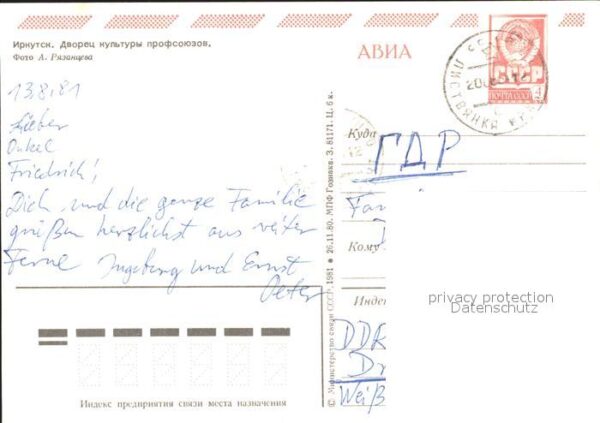 Иркутск. Дворец культуры профсоюзов.
Фото А. Рязанцева
АВИА
СССР
ПОЧТА СССР
4
ЛИСТВЯНКА
13.8.81
Lieber
Onkel
Friedrich!
Dich und die ganze Familie
grüßen herzlichst aus weiter
Ferne Ingeborg und Ernst
Peter
© Министерство связи СССР, 1981 ● 26.11.80. МПФ Гознака. З. 81171. Ц. 6 к.
Куда
ГДР
Fam
Кому
Индекс
DDR
Dr
Weiß
privacy protection
Datenschutz
Индекс предприятия связи места назначения